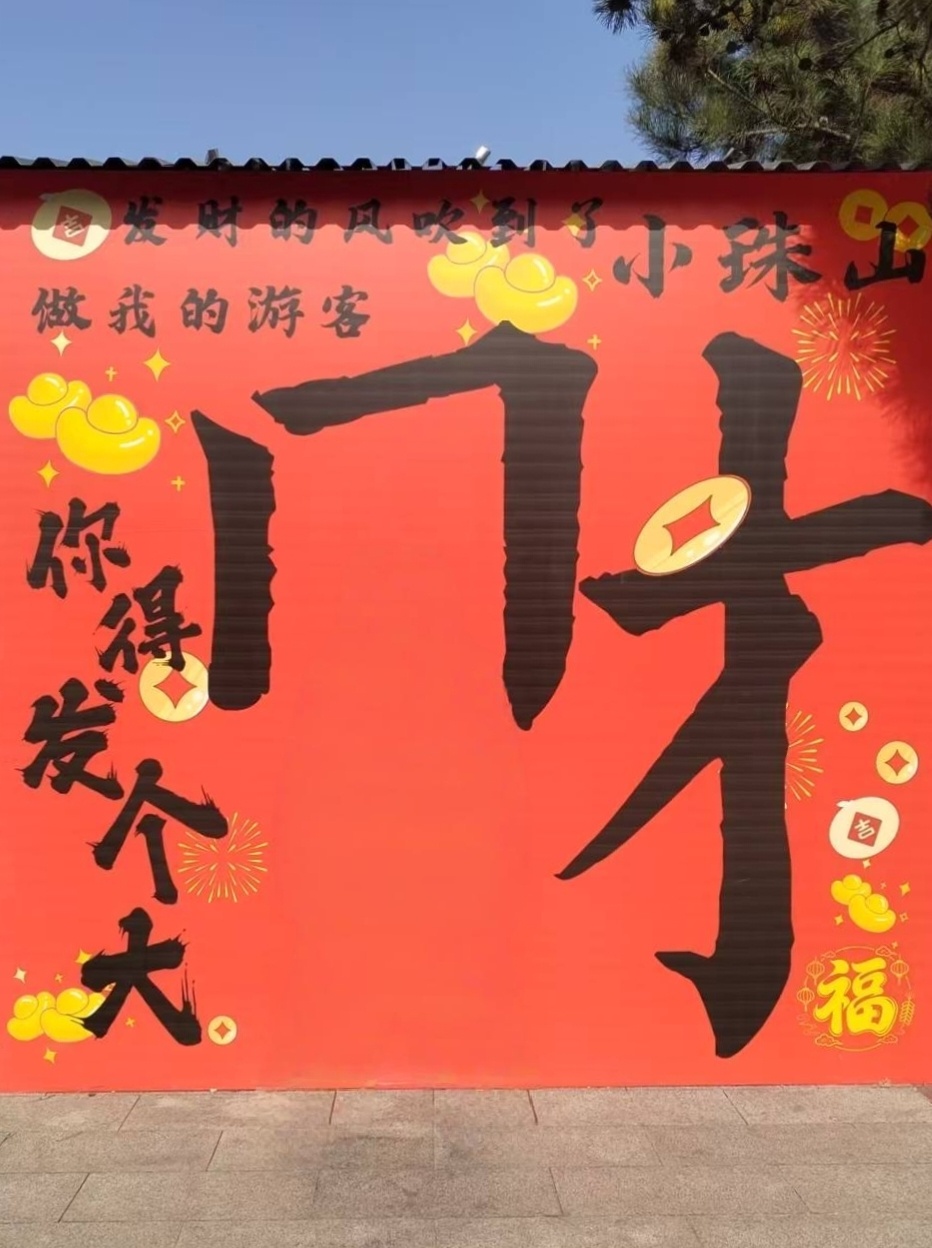 发财的风吹到了小珠山
做我的游客
你得发个大
冂才
福